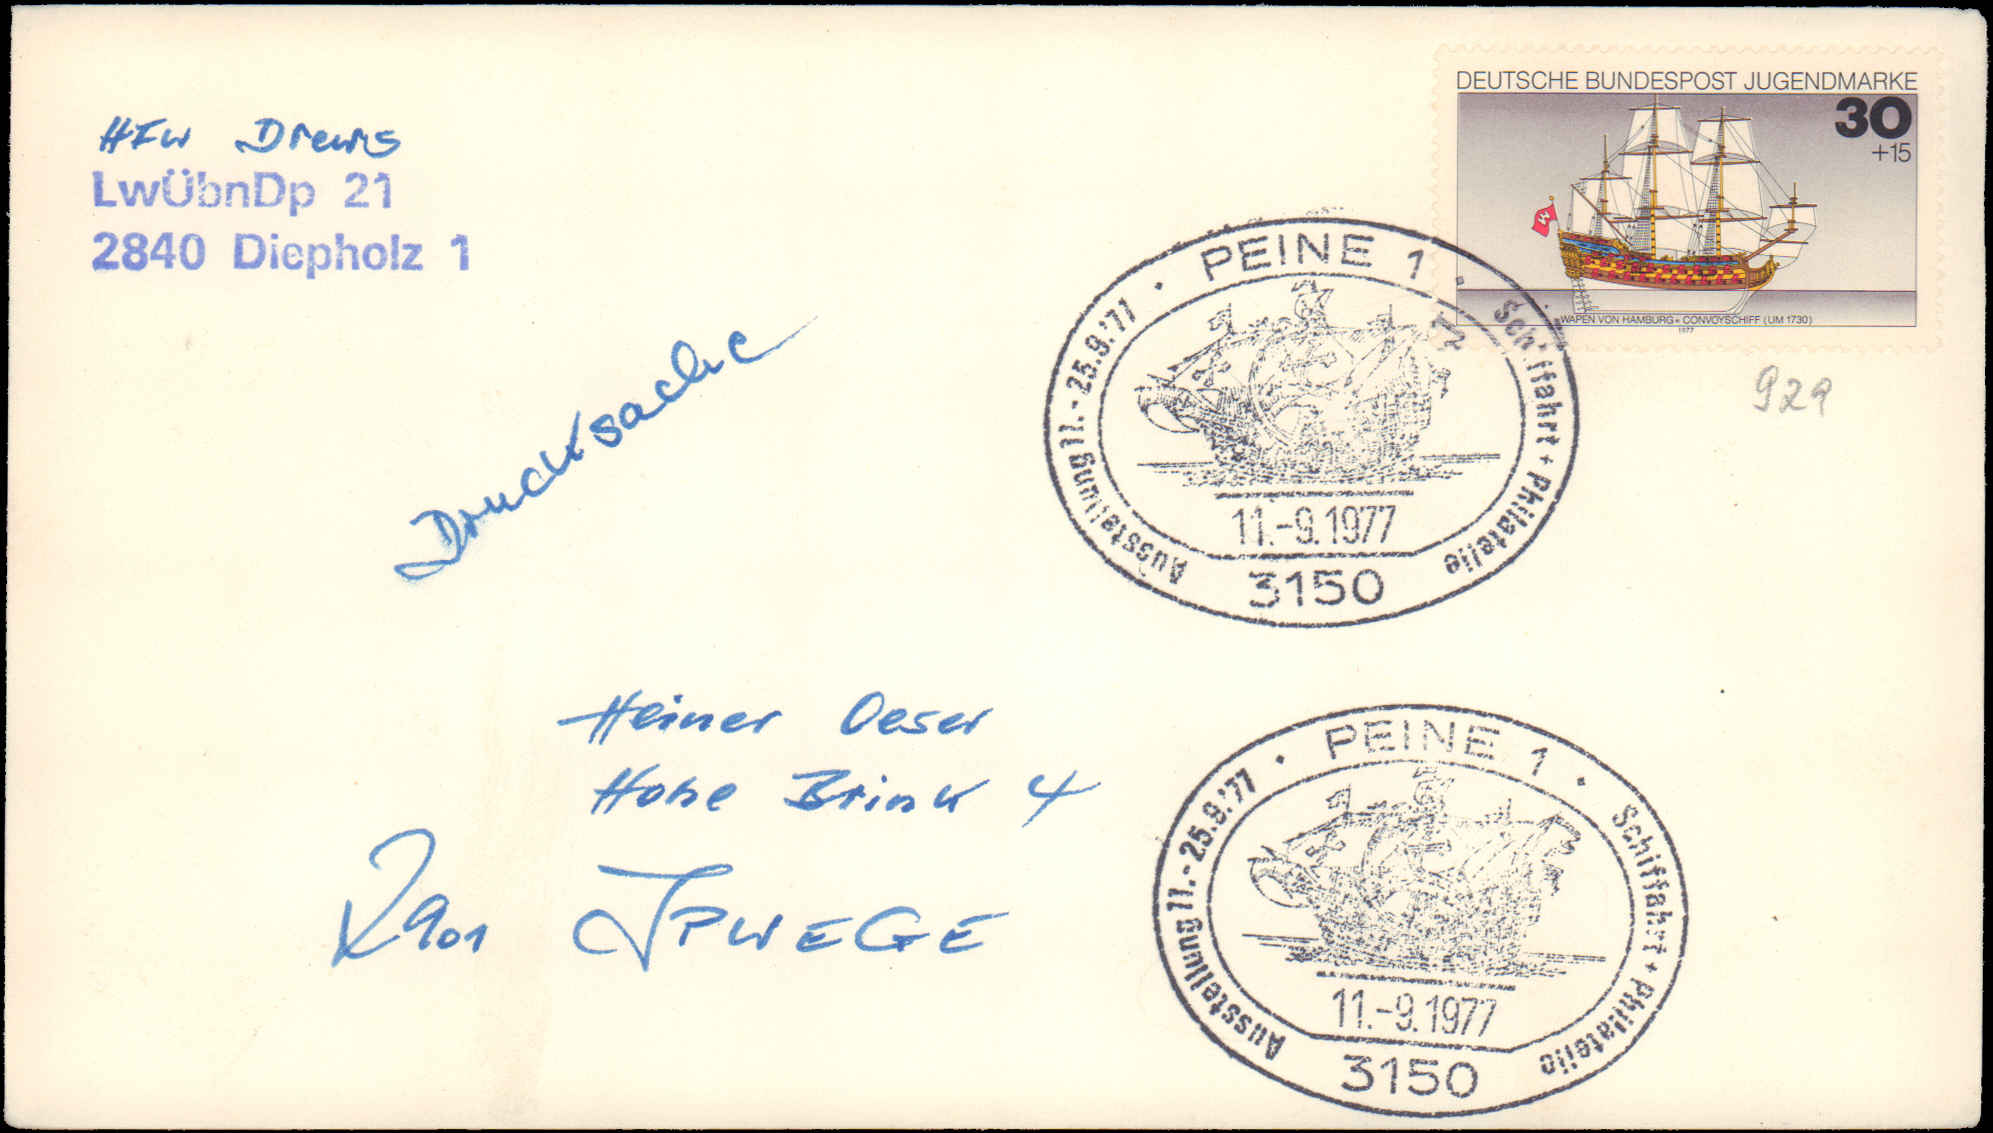 HFw Drews
LwÜbnDp 21
2840 Diepholz 1
Drucksache
DEUTSCHE BUNDESPOST JUGENDMARKE
30
+15
WAPEN VON HAMBURG« CONVOYSCHIFF (UM 1730)
1977
929
PEINE 1
Ausstellung 11.-25.9.'77
Schiffahrt + Philatelie
11.-9.1977
3150
Heiner Oeser
Hohe Brink 4
2901 IPWEGE
PEINE 1
Ausstellung 11.-25.9.'77
Schiffahrt + Philatelie
11.-9.1977
3150